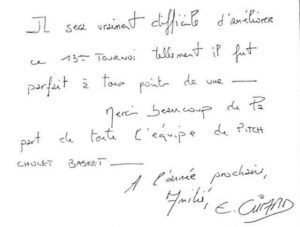 Il sera vraiment difficile d'améliorer
ce 13ème TOURNOI tellement il fut
parfait à tous points de vue —
Merci beaucoup de la
part de toute l'équipe de PITCH
CHOLET BASKET —
A l'année prochaine,
Amitié,
E. GIRARD